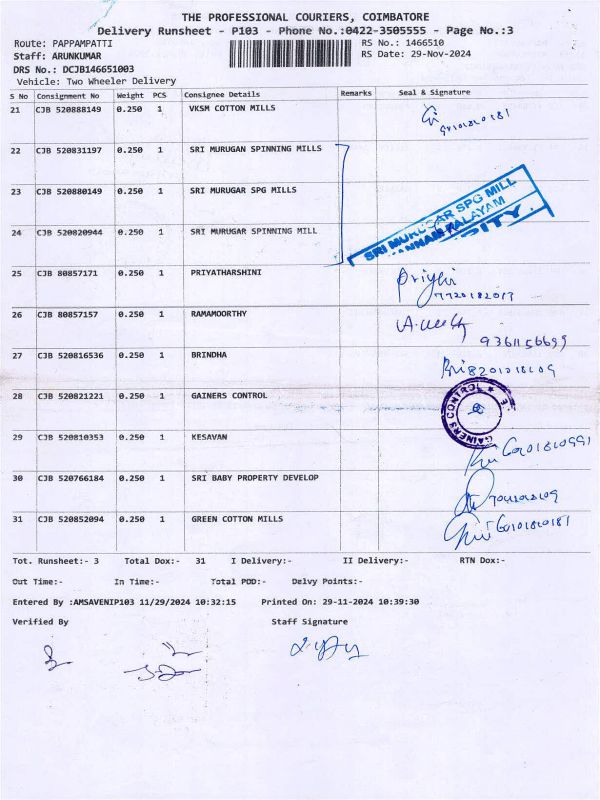 THE PROFESSIONAL COURIERS, COIMBATORE
Delivery Runsheet - P103 - Phone No.:0422-3505555 - Page No.:3
Route: PAPPAMPATTI RS No.: 1466510
Staff: ARUNKUMAR RS Date: 29-Nov-2024
DRS No.: DCJB146651003
Vehicle: Two Wheeler Delivery
S No Consignment No Weight PCS Consignee Details Remarks Seal & Signature
21 CJB 520888149 0.250 1 VKSM COTTON MILLS
22 CJB 520831197 0.250 1 SRI MURUGAN SPINNING MILLS
23 CJB 520880149 0.250 1 SRI MURUGAR SPG MILLS
SRI MURUGAR SPG MILL
24 CJB 520820944 0.250 1 SRI MURUGAR SPINNING MILL
25 CJB 80857171 0.250 1 PRIYATHARSHINI
26 CJB 80857157 0.250 1 RAMAMOORTHY
27 CJB 520816536 0.250 1 BRINDHA
28 CJB 520821221 0.250 1 GAINERS CONTROL
GAINERS CONTROL
29 CJB 520810353 0.250 1 KESAVAN
30 CJB 520766184 0.250 1 SRI BABY PROPERTY DEVELOP
31 CJB 520852094 0.250 1 GREEN COTTON MILLS
Tot. Runsheet:- 3 Total Dox:- 31 I Delivery:- II Delivery:- RTN Dox:-
Out Time:- In Time:- Total POD:- Delvy Points:-
Entered By :AMSAVENIP103 11/29/2024 10:32:15 Printed On: 29-11-2024 10:39:30
Verified By Staff Signature